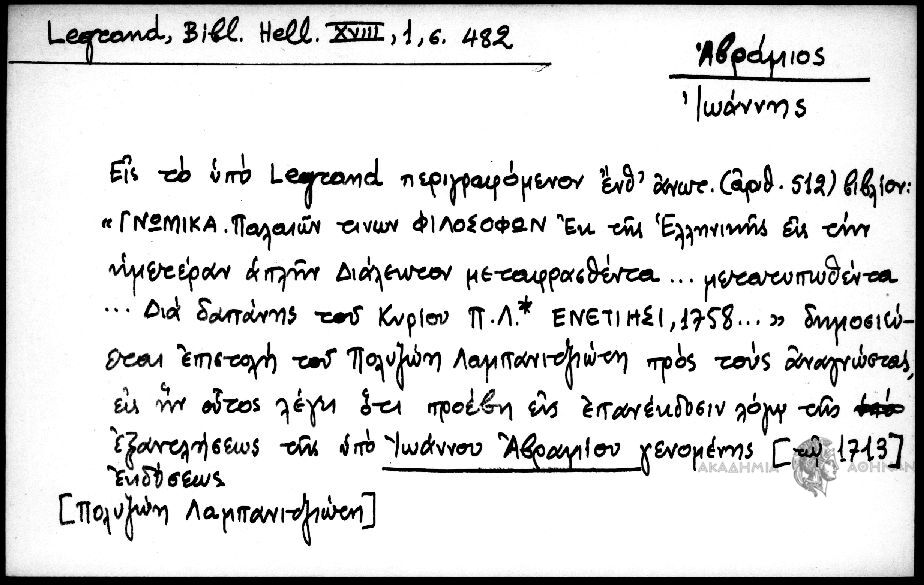 Legrand, Bibl. Hell. XVIII, 1, σ. 482
Ἀβράμιος
Ἰωάννης
Εἰς τὸ ὑπὸ Legrand περιγραφόμενον ἔνθ' ἀνωτ. (ἀριθ. 512) βιβλίον:
«ΓΝΩΜΙΚΑ. Παλαιῶν τινων ΦΙΛΟΣΟΦΩΝ Ἐκ τῆς Ἑλληνικῆς εἰς τὴν
ἡμετέραν ἁπλῆν Διάλεκτον μεταφρασθέντα ... μετατυπωθέντα
... Διὰ δαπάνης τοῦ Κυρίου Π.Λ.* ΕΝΕΤΙΗΣΙ, 1758 ...» δημοσιεύ-
εται ἐπιστολὴ τοῦ Πολυζώη Λαμπανιτζιώτη πρὸς τοὺς ἀναγνώστας,
εἰς ἣν οὗτος λέγει ὅτι προέβη εἰς ἐπανέκδοσιν λόγῳ τῆς
ἐξαντλήσεως τῆς ὑπὸ Ἰωάννου Ἀβραμίου γενομένης [τῷ 1713]
ἐκδόσεως
[Πολυζώη Λαμπανιτζιώτη]
ΑΚΑΔΗΜΙΑ ΑΘΗΝΩΝ